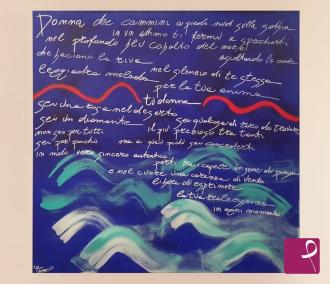 Donna, che cammini a piedi nudi sulla sabbia
in un attimo ti fermi a specchiarti
nel profondo blu cobalto del mare
ascoltando le onde
che baciano la riva
nel silenzio di te stessa
leggiadra melodia
per la tua anima
tu donna
sei una rosa nel deserto
sei un diamante
sei qualcosa di raro da trovare
non sei per tutti
il più prezioso tra tanti
sei per pochi
ma a pochi puoi sei concederti
in modo vero sincero autentico
e nel cuore una carezza di vento
libera di esprimere
la tua trasparenza
in ogni momento